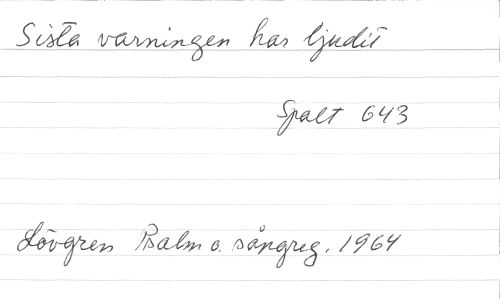 Sista varningen har ljudit
Spalt 643
Lövgren Psalm o. sångreg. 1964